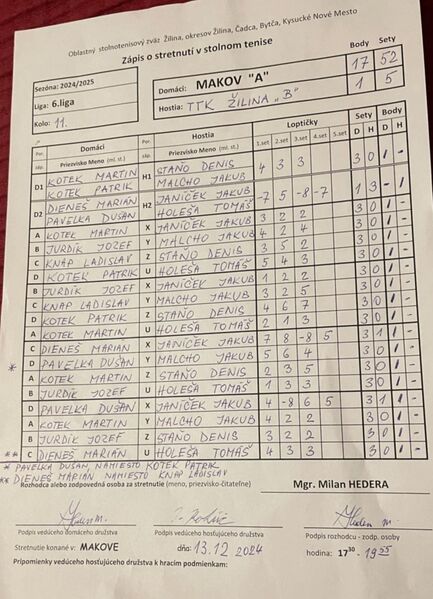 Oblastný stolnotenisový zväz Žilina, okresov Žilina, Čadca, Bytča, Kysucké Nové Mesto
Zápis o stretnutí v stolnom tenise
Body Sety
Sezóna: 2024/2025 Domáci: MAKOV "A" 17 52
Liga: 6.liga Hostia: TTK ŽILINA „B" 1 5
Kolo: 11.
Domáci Hostia Loptičky Sety Body
Por. záp. Priezvisko Meno (ml. st.) Por. záp. Priezvisko Meno (ml. st.) 1.set 2.set 3.set 4.set 5.set D H D H
D1 KOTEK MARTIN H1 STAŇO DENIS 4 3 3 3 0 1 -
KOTEK PATRIK MALCHO JAKUB
D2 DIENEŠ MARIÁN H2 JANÍČEK JAKUB -7 5 -8 -7 1 3 - 1
PAVELKA DUŠAN HOLEŠA TOMÁŠ
A KOTEK MARTIN X JANÍČEK JAKUB 3 2 2 3 0 1 -
B JURDÍK JOZEF Y MALCHO JAKUB 4 2 2 3 0 1 -
C KNAP LADISLAV Z STAŇO DENIS 3 5 2 3 0 1 -
D KOTEK PATRIK U HOLEŠA TOMÁŠ 5 4 3 3 0 1 -
B JURDÍK JOZEF X JANÍČEK JAKUB 1 2 2 3 0 1 -
C KNAP LADISLAV Y MALCHO JAKUB 3 2 5 3 0 1 -
D KOTEK PATRIK Z STAŇO DENIS 4 6 7 3 0 1 -
A KOTEK MARTIN U HOLEŠA TOMÁŠ 2 1 3 3 0 1 -
C DIENEŠ MARIÁN X JANÍČEK JAKUB 7 8 -8 5 3 1 1 -
* D PAVELKA DUŠAN Y MALCHO JAKUB 5 6 4 3 0 1 -
A KOTEK MARTIN Z STAŇO DENIS 2 3 5 3 0 1 -
B JURDÍK JOZEF U HOLEŠA TOMÁŠ 1 3 3 3 0 1 -
D PAVELKA DUŠAN X JANÍČEK JAKUB 4 -8 6 5 3 1 1 -
A KOTEK MARTIN Y MALCHO JAKUB 4 2 2 3 0 1 -
B JURDÍK JOZEF Z STAŇO DENIS 3 2 2 3 0 1 -
** C DIENEŠ MARIÁN U HOLEŠA TOMÁŠ 4 3 3 3 0 1 -
* PAVELKA DUŠAN NAMIESTO KOTEK PATRIK
** DIENEŠ MARIÁN NAMIESTO KNAP LADISLAV
Rozhodca alebo zodpovedná osoba za stretnutie (meno, priezvisko-čitateľne) Mgr. Milan HEDERA
Podpis vedúceho domáceho družstva Podpis vedúceho hosťujúceho družstva Podpis rozhodcu - zodp. osoby
Stretnutie konané v: MAKOVE dňa: 13.12 2024 hodina: 17³⁰ - 19⁵⁵
Pripomienky vedúceho hosťujúceho družstva k hracím podmienkam: